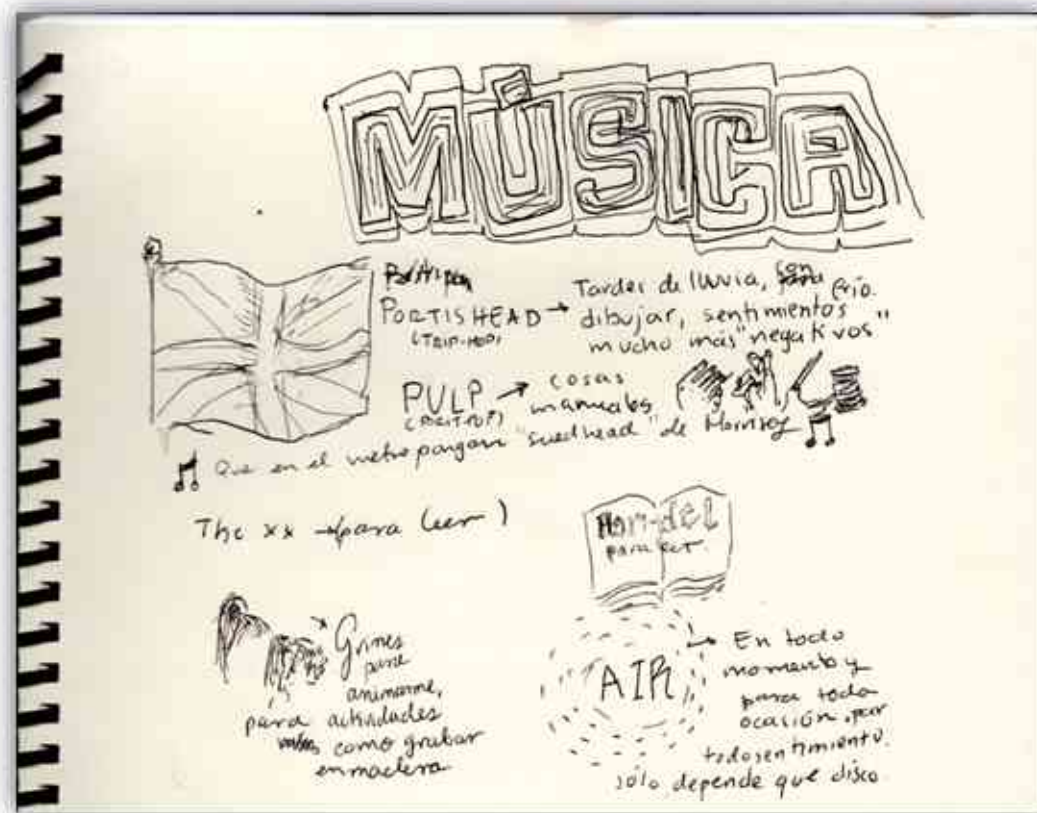 MÚSICA
PORTISHEAD →
(TRIP-HOP)
Tardes de lluvia, con frío.
dibujar, sentimientos
mucho más "negativos"
PULP →
(BRITPOP)
cosas
manuales
Que en el metro pongan "suedhead" de Morrisey
The xx → para leer )
para
→ Grimes
para
animarme,
para actividades
como grabar
en madera
AIR
→ En todo
momento y
para toda
ocasión, por
todo sentimiento.
sólo depende que disco